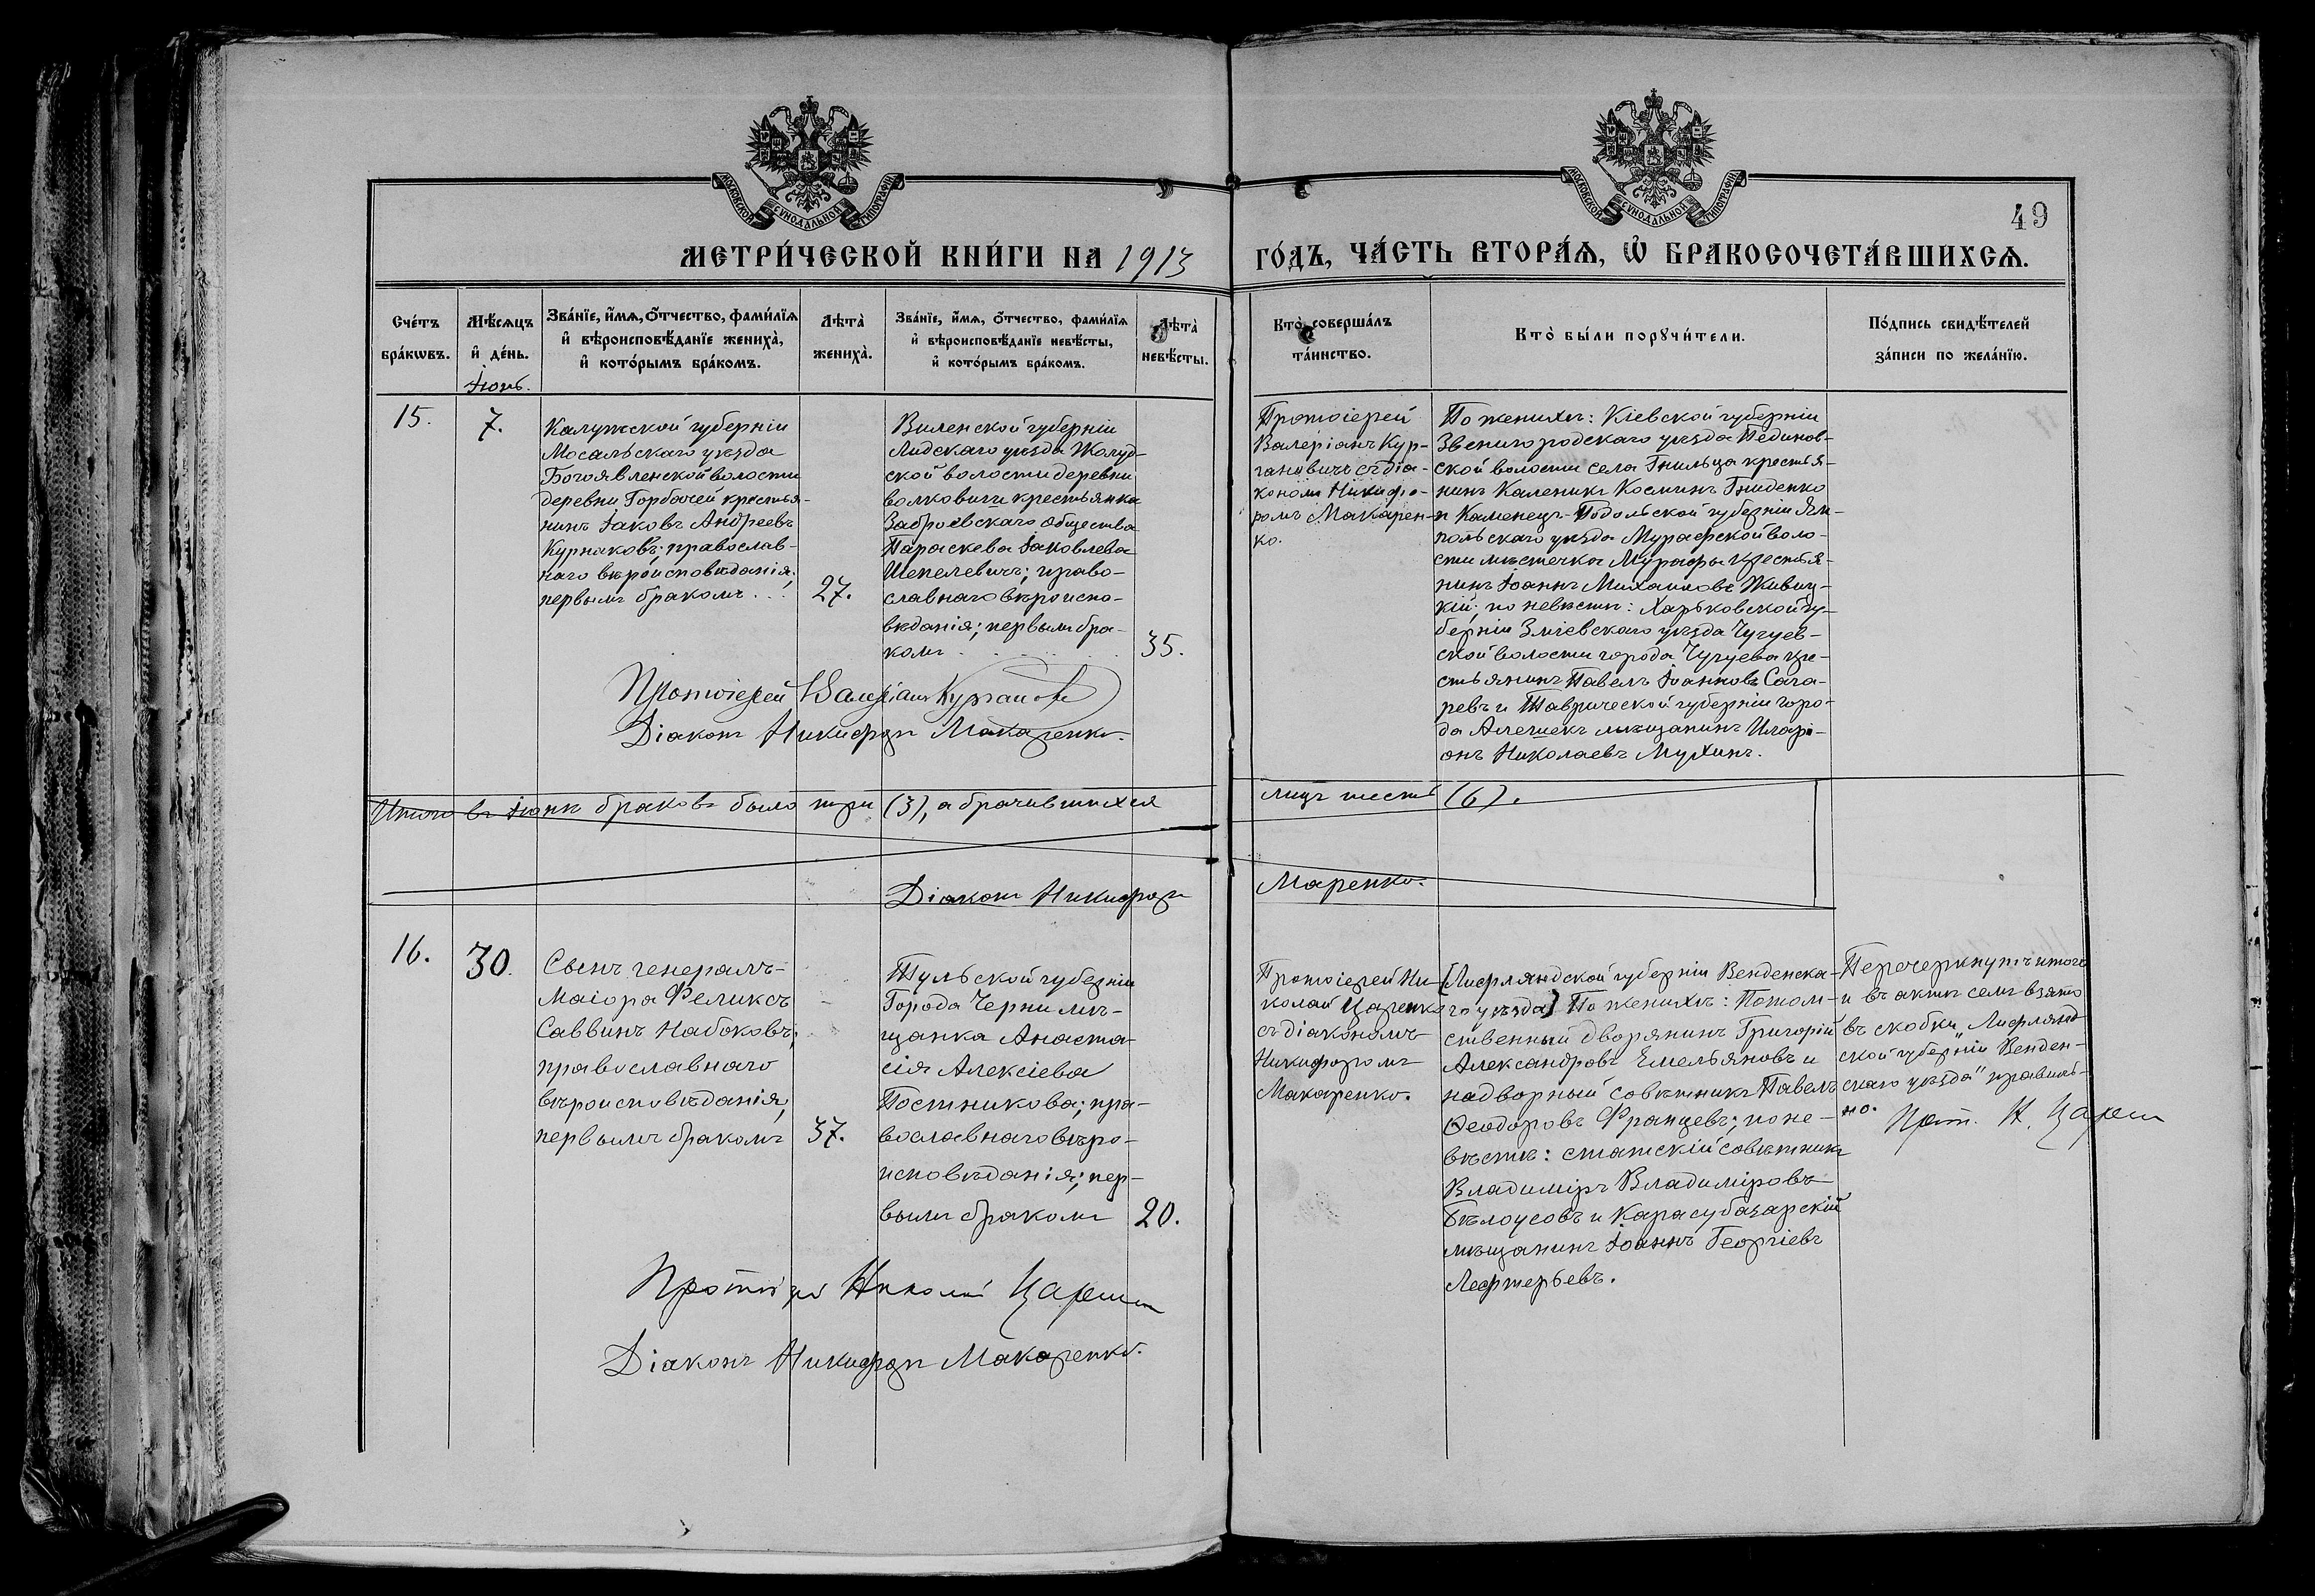 МОСКОВСКОЙ СѴНОДАЛЬНОЙ ТИПОГРАФІИ
МОСКОВСКОЙ СѴНОДАЛЬНОЙ ТИПОГРАФІИ
49
МЕТРИ́ЧЕСКОЙ КНИ́ГИ НА 1913
ГО́ДЪ, ЧА́СТЬ ВТОРА́Ѧ, Ѡ҆ БРАКОСОЧЕТА́ВШИХСѦ.
Сче́тъ
бра́кѡвъ.
Мѣ́сѧцъ
и҆ де́нь.
Іюнь.
Зва́нїе, и҆́мѧ, ѻ҆́тчество, фами́лїѧ
и҆ вѣроисповѣ́данїе жениха̀,
и҆ кото́рымъ бра́комъ.
Лѣта̀
жениха̀.
Зва́нїе, и҆́мѧ, ѻ҆́тчество, фами́лїѧ
и҆ вѣроисповѣ́данїе невѣ́сты,
и҆ кото́рымъ бра́комъ.
Лѣта̀
невѣ́сты.
Кто̀ соверша́лъ
та́инство.
Кто̀ бы́ли порꙋчи́тели.
По́дпись свидѣ́телей
за́писи по жела́нїю.
15.
7.
Калужской губерніи
Мосальскаго уѣзда
Богоявленской волости
деревни Горбачей крестья-
нинъ Іаковъ Андреевъ
Курнаковъ; православ-
наго вѣроисповѣданія;
первымъ бракомъ . .
27.
Виленской губерніи
Лидскаго уѣзда Жолуд-
ской волости деревни
Волковичи крестьянка
Забровскаго общества
Параскева Іаковлева
Шепелевичъ; право-
славнаго вѣроиспо-
вѣданія; первымъ бра-
комъ . . . . . .
35.
Протоіерей
Валеріанъ Кур-
гановичъ съ діа-
кономъ Никифо-
ромъ Макарен-
ко.
По женихѣ: Кіевской губерніи
Звенигородскаго уѣзда Пединов-
ской волости села Гнильца крестья-
нинъ Каленикъ Косминъ Гниденко
и Каменецъ-Подольской губерніи Ям-
польскаго уѣзда Мурафской воло-
сти мѣстечка Мурафы крестья-
нинъ Іоаннъ Михаиловъ Живиц-
кій; по невѣстѣ: Харьковской гу-
берніи Зміевскаго уѣзда Чугуев-
ской волости города Чугуева кре-
стьянинъ Павелъ Іоанновъ Сага-
ревъ и Таврической губерніи горо-
да Алешекъ мѣщанинъ Иларі-
онъ Николаевъ Мухинъ.
Протоіерей Валеріанъ Курганович
Діаконъ Никифоръ Макаренко.
Итого въ Іюнѣ браковъ было три (3), а брачившихся
лицъ шесть (6).
Діаконъ Никифоръ
Маренко.
16.
30.
Сынъ генералъ-
маіора Феликсъ
Саввинъ Набоковъ;
православнаго
вѣроисповѣданія;
первымъ бракомъ
37.
Тульской губерніи
Города Черни мѣ-
щанка Анаста-
сія Алексіева
Постникова; пра-
вославнаго вѣро-
исповѣданія; пер-
вымъ бракомъ
20.
Протоіерей Ни-
колай Царенко
съ діакономъ
Никифоромъ
Макаренко.
[Лифляндской губерніи Венденска-
го уѣзда] По женихѣ: Потом-
ственный дворянинъ Григорій
Александровъ Емельяновъ и
надворный совѣтникъ Павелъ
Ѳеодоровъ Францевъ; по не-
вѣстѣ: статскій совѣтникъ
Владиміръ Владиміровъ
Бѣлоусовъ и Карасубазарскій
мѣщанинъ Іоаннъ Георгіевъ
Лефтерьевъ.
Перечеркнутъ итогъ
и въ актѣ семъ взято
въ скобки „Лифлянд-
ской губерніи Венден-
скаго уѣзда" правиль-
но.
Прот. Н. Царен
Протоіерей Николай Царенко
Діаконъ Никифоръ Макаренко.